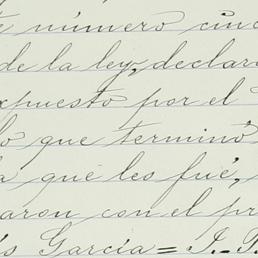 número cinc
de la ley, declara
xpuesto por el
lo que terminó
a que les fué,
aron con el pr
s García = J.